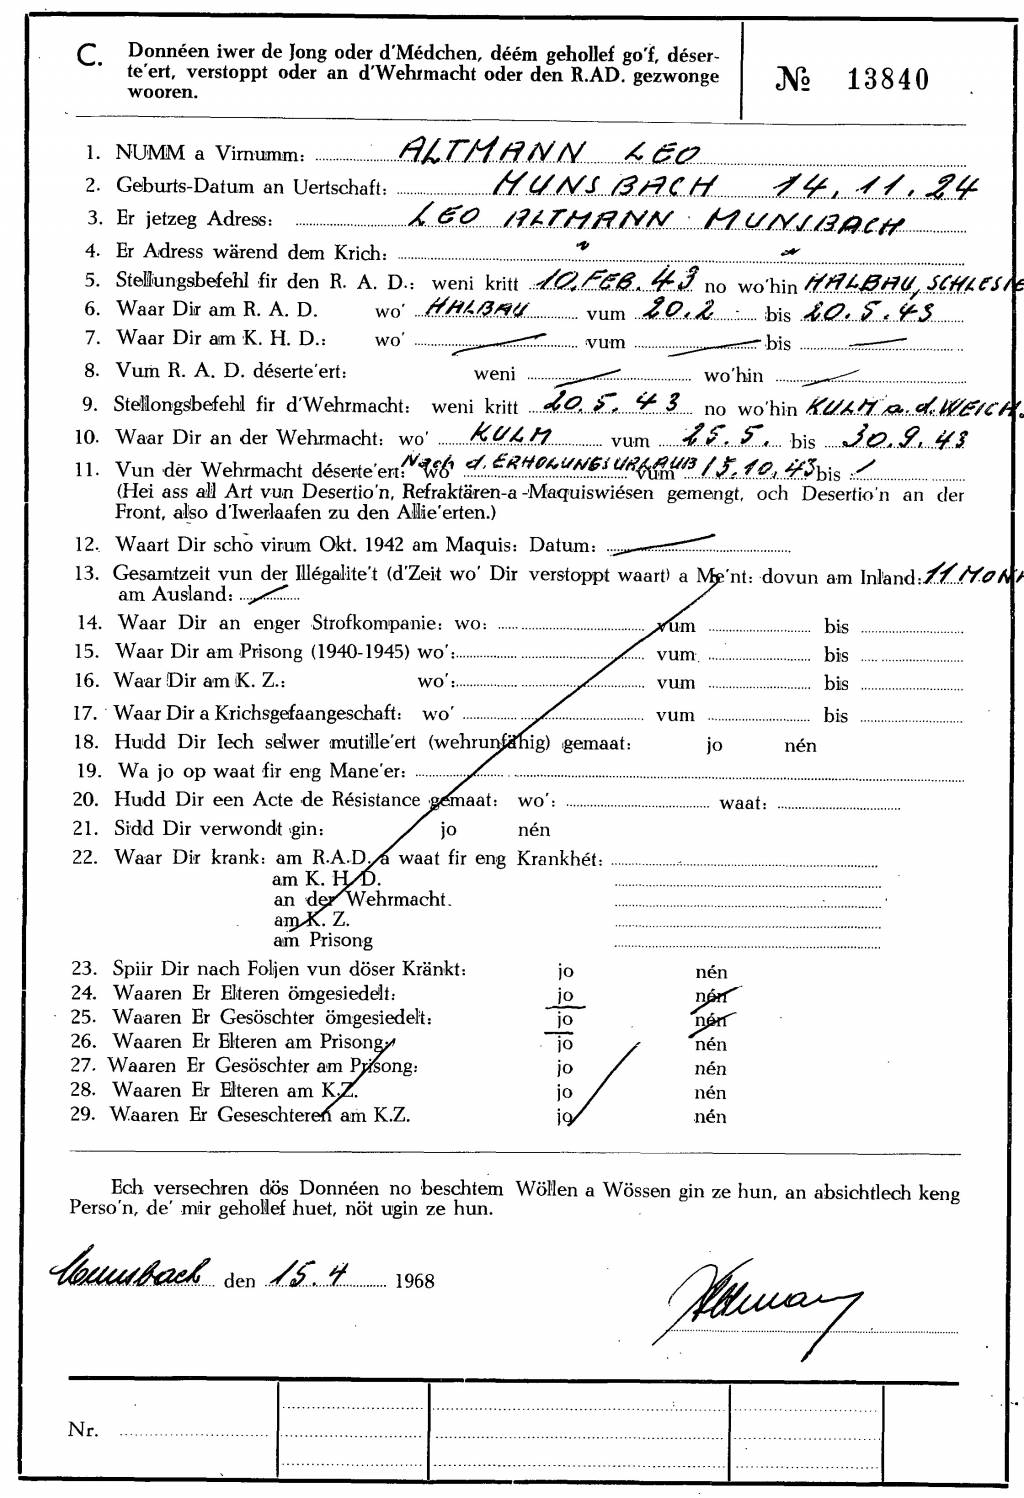 C. Donnéen iwer de Jong oder d'Médchen, déém gehollef go'f, déser-
te'ert, verstoppt oder an d'Wehrmacht oder den R.AD. gezwonge
wooren.
№ 13840
1. NUMM a Virnumm: ALTMANN LEO
2. Geburts-Datum an Uertschaft: MUNSBACH 14.11.24
3. Er jetzeg Adress: LEO ALTMANN MUNSBACH
4. Er Adress wärend dem Krich: " "
5. Stellungsbefehl fir den R. A. D.: weni kritt 10. FEB. 43 no wo'hin HALBAU, SCHLESIE
6. Waar Dir am R. A. D. wo' HALBAU vum 20.2 bis 20.5.43
7. Waar Dir am K. H. D.: wo' vum bis
8. Vum R. A. D. déserte'ert: weni wo'hin
9. Stellongsbefehl fir d'Wehrmacht: weni kritt 20.5.43 no wo'hin KULM a.d.WEICHS
10. Waar Dir an der Wehrmacht: wo' KULM vum 25.5. bis 30.9.43
11. Vun der Wehrmacht déserte'ert: wo' Nach d. ERHOLUNGSURLAUB vum 15.10.43 bis
(Hei ass all Art vun Desertio'n, Refraktären-a-Maquiswiésen gemengt, och Desertio'n an der
Front, also d'Iwerlaafen zu den Allie'erten.)
12. Waart Dir scho virum Okt. 1942 am Maquis: Datum:
13. Gesamtzeit vun der Illégalite't (d'Zeit wo' Dir verstoppt waart) a Me'nt: dovun am Inland: 11 MONA
am Ausland:
14. Waar Dir an enger Strofkompanie: wo: vum bis
15. Waar Dir am Prisong (1940-1945) wo': vum bis
16. Waar Dir am K. Z.: wo': vum bis
17. Waar Dir a Krichsgefaangeschaft: wo' vum bis
18. Hudd Dir Iech selwer mutille'ert (wehrunfähig) gemaat: jo nén
19. Wa jo op waat fir eng Mane'er:
20. Hudd Dir een Acte de Résistance gemaat: wo': waat:
21. Sidd Dir verwondt gin: jo nén
22. Waar Dir krank: am R.A.D. a waat fir eng Krankhét:
am K. H. D.
an der Wehrmacht.
am K. Z.
am Prisong
23. Spiir Dir nach Foljen vun döser Kränkt: jo nén
24. Waaren Er Elteren ömgesiedelt: jo nén
25. Waaren Er Gesöschter ömgesiedelt: jo nén
26. Waaren Er Elteren am Prisong: jo nén
27. Waaren Er Gesöschter am Prisong: jo nén
28. Waaren Er Elteren am K.Z. jo nén
29. Waaren Er Geseschteren am K.Z. jo nén
Ech versechren dös Donnéen no beschtem Wöllen a Wössen gin ze hun, an absichtlech keng
Perso'n, de' mir gehollef huet, nöt ugin ze hun.
Munsbach den 15.4 1968
Altmann
Nr.